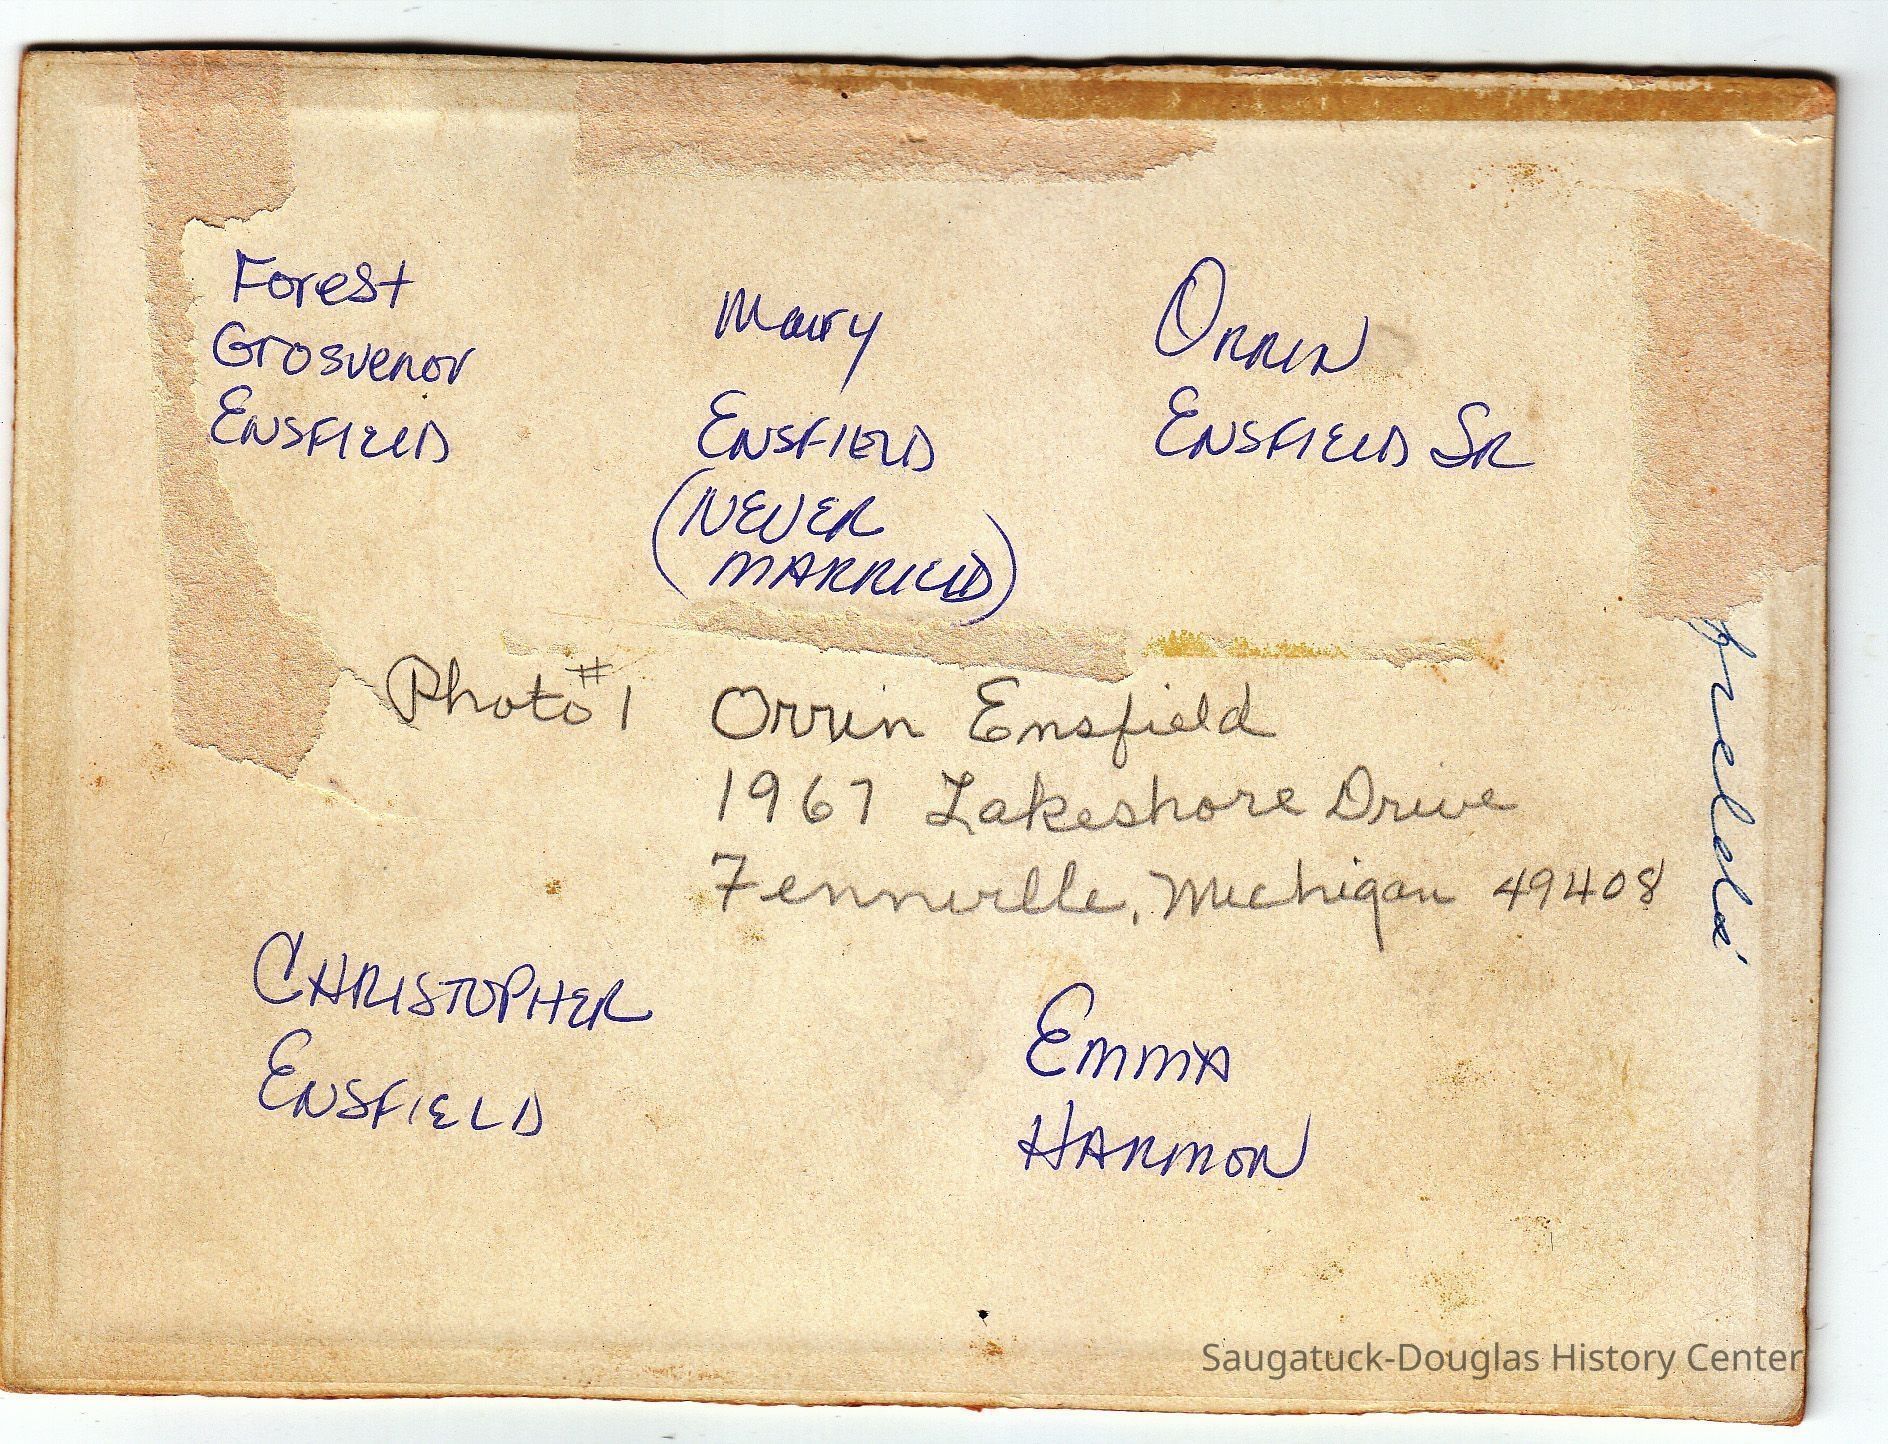 Forest
Grosvenor
ENSFIELD
Mary
ENSFIELD
(NEVER
MARRIED)
ORRIN
ENSFIELD SR
Photo #1 Orrin Ensfield
1967 Lakeshore Drive
Fennville, Michigan 49408
CHRISTOPHER
ENSFIELD
EMMA
HARMON
Saugatuck-Douglas History Center